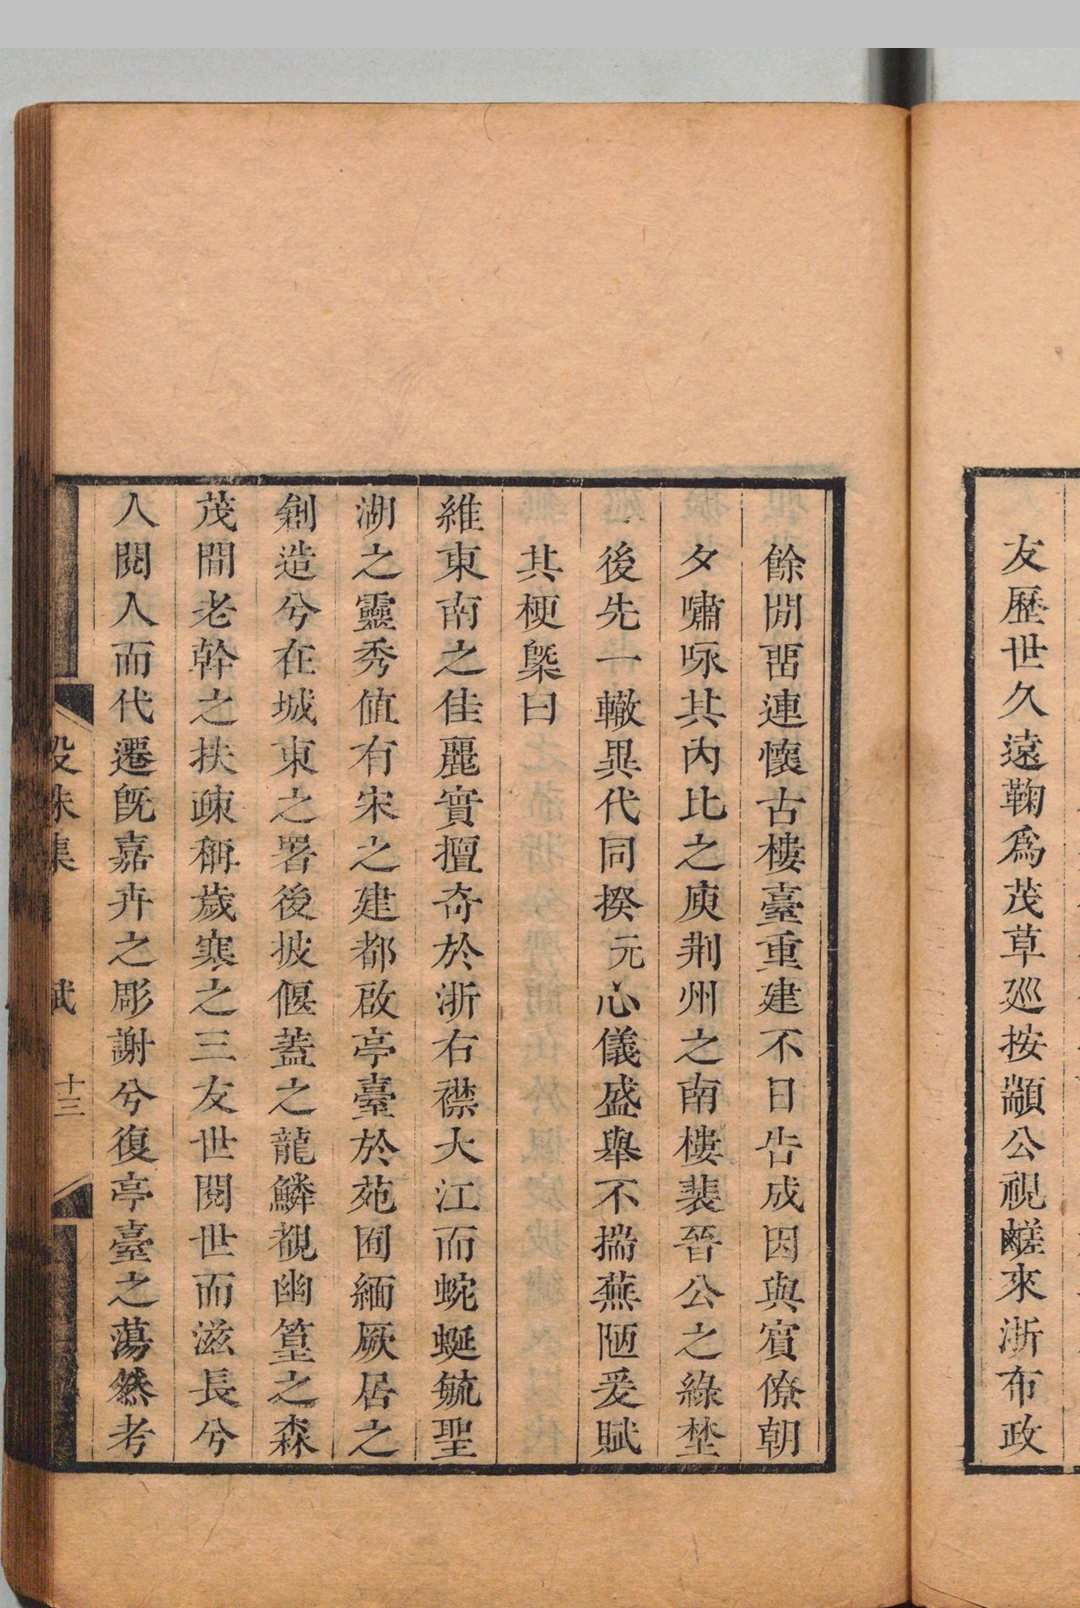 友歷世久遠鞠爲茂草巡按顓公視鹺來浙布政
餘閒畱連懷古樓臺重建不日告成因與賓僚朝
夕嘯咏其內比之庾荆州之南樓裴晉公之綠埜
後先一轍異代同揆元心儀盛舉不揣蕪陋爰賦
其梗槩曰
維東南之佳麗實擅奇於浙右襟大江而蜿蜒毓聖
湖之靈秀值有宋之建都啟亭臺於苑囿緬厥居之
創造兮在城東之署後披偃蓋之龍鱗覩幽篁之森
茂間老幹之扶疎稱歲寒之三友世閱世而滋長兮
人閱人而代遷旣嘉卉之彫謝兮復亭臺之蕩然考
殳珠集
賦
十三